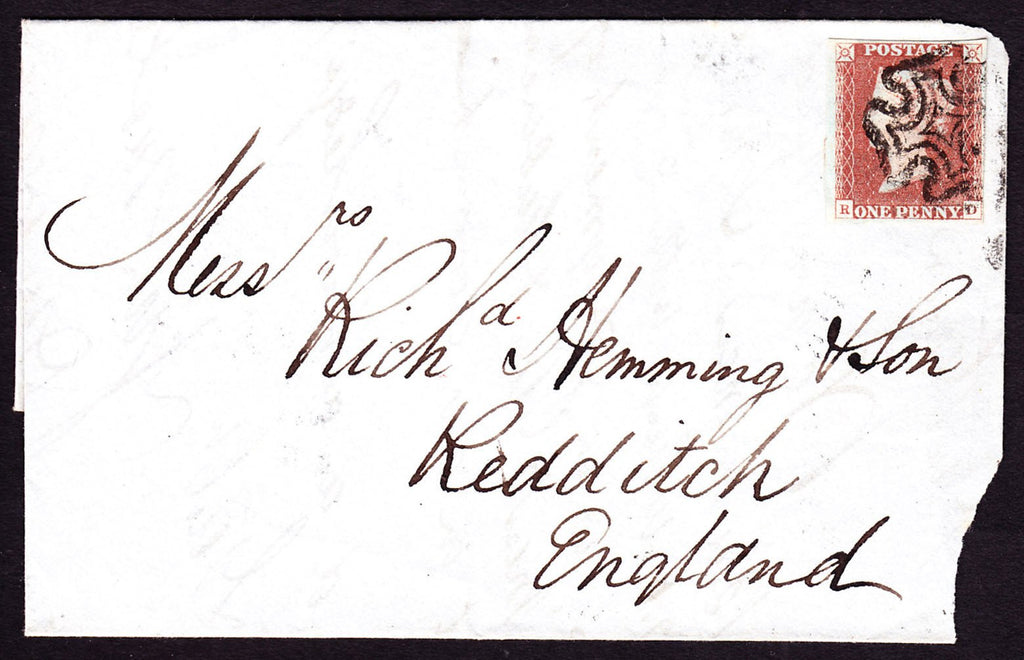 POSTAGE
R ONE PENNY D
Messrs
Richd. Hemming & Son
Redditch
England